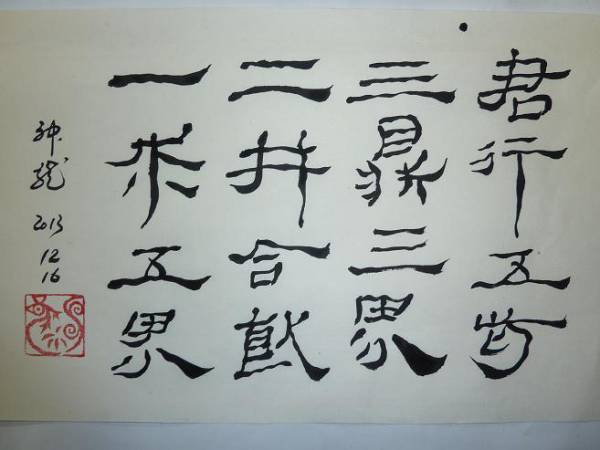 君行五
三鼎三界
二井合
一求五界
神龙 2013
12
16